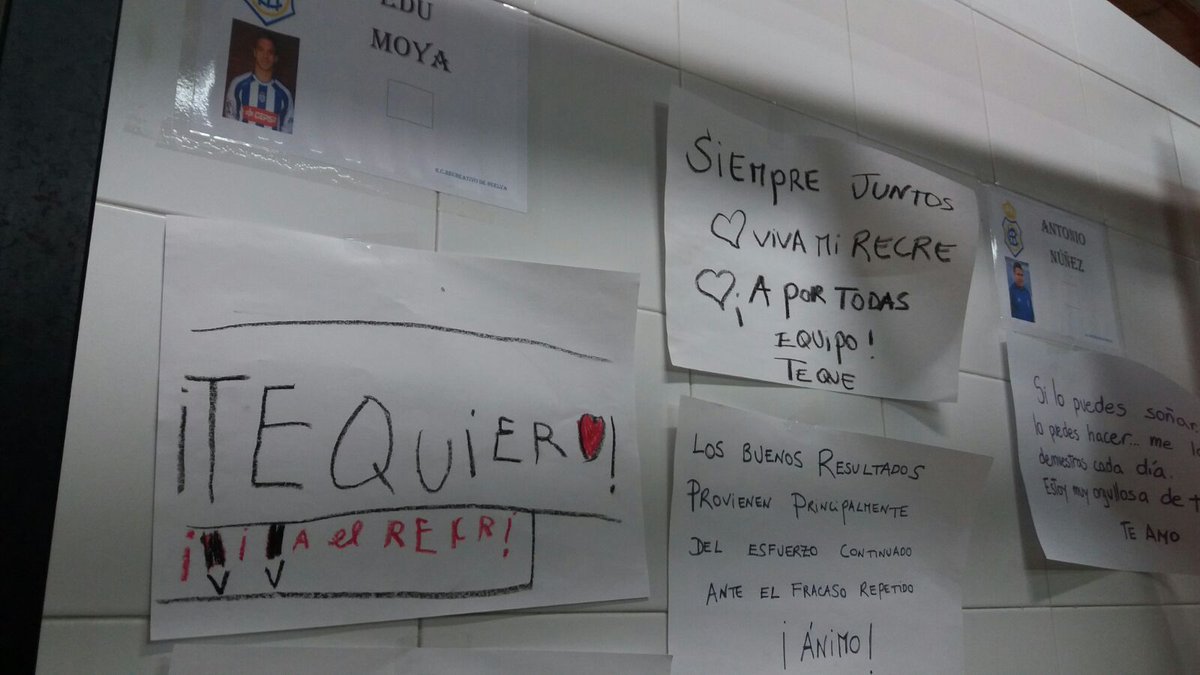 EDU
MOYA
R.C.RECREATIVO DE HUELVA
¡TE QUIERO!
¡ i A el RECR!
V V
SIEMPRE JUNTOS
VIVA MI RECRE
¡A POR TODAS
EQUIPO!
TE QUE
LOS BUENOS RESULTADOS
PROVIENEN PRINCIPALMENTE
DEL ESFUERZO CONTINUADO
ANTE EL FRACASO REPETIDO
¡ÁNIMO!
ANTONIO
NÚÑEZ
Si lo puedes soñar,
lo puedes hacer... me lo
demuestras cada día.
Estoy muy orgullosa de t
TE AMO